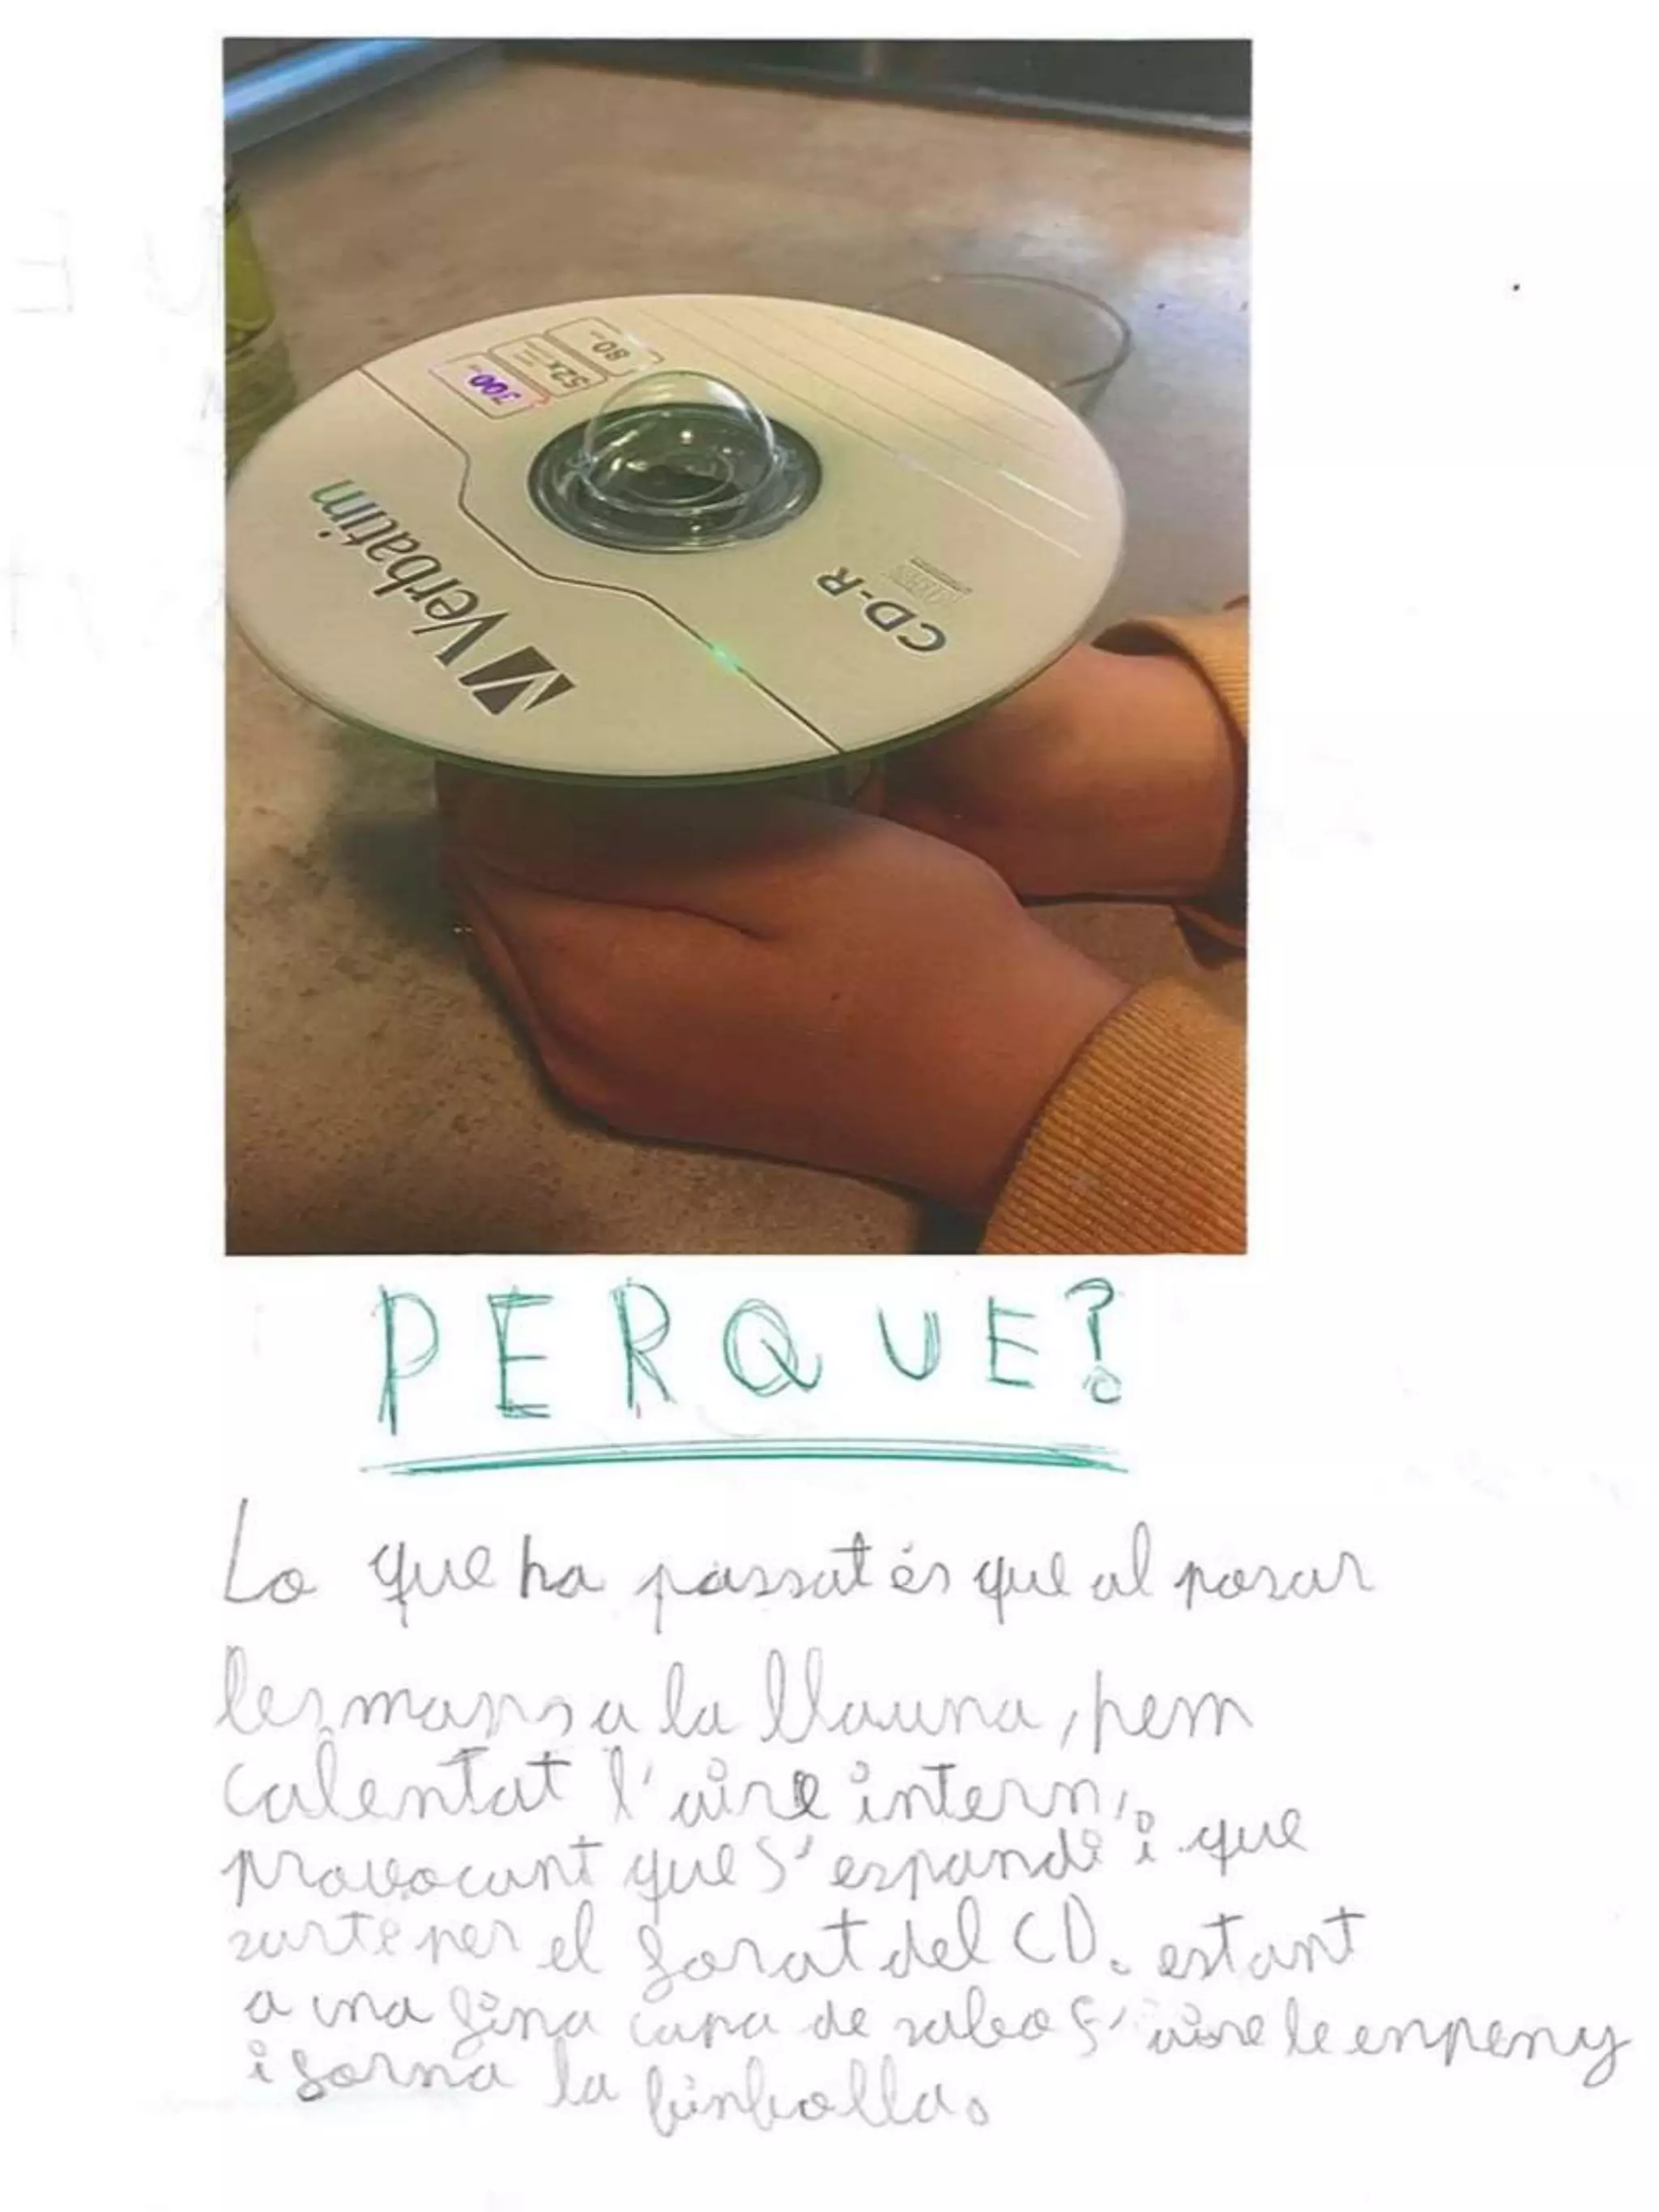 700
52x
80
Verbatim
CD-R
PERQUE?
Lo que ha passat és que al posar
les mans a la llauna, hem
calentat l'aire intern,
provocant que s'espandi i que
surti per el forat del CD. estant
a una fina capa de sabo l'aire le enpeny
i forma la binbolla.